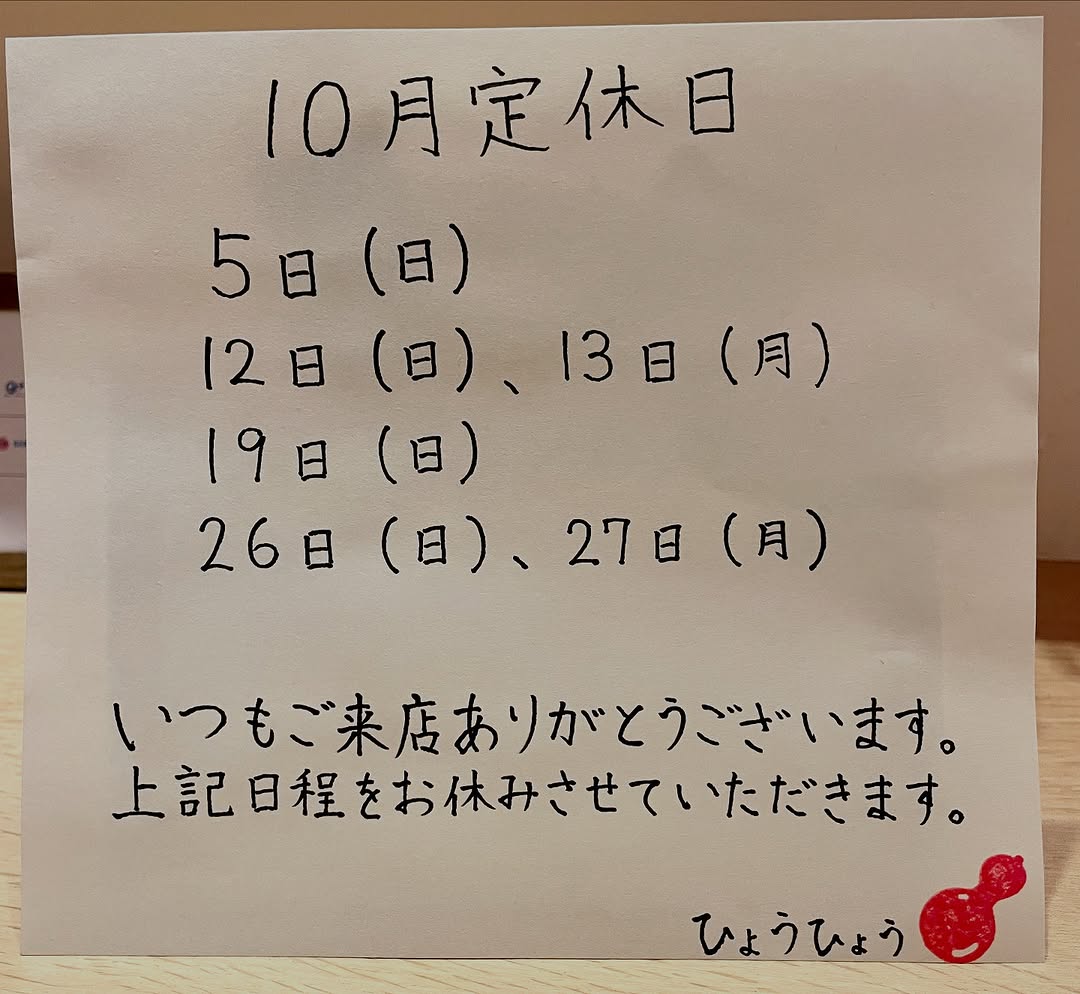 10月定休日
5日(日)
12日(日)、13日(月)
19日(日)
26日(日)、27日(月)
いつもご来店ありがとうございます。
上記日程をお休みさせていただきます。
ひょうひょう